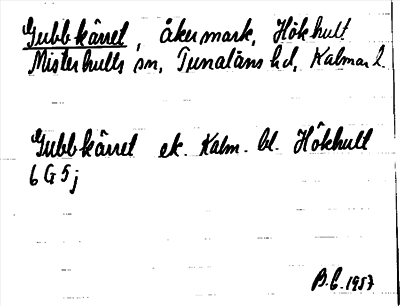 Gubbkärret, åkermark, Hökhult
Misterhults sn, Tunaläns hd, Kalmar l.
Gubbkärret ek. Kalm. bl. Hökhult
6 G 5 j
B.G. 1957